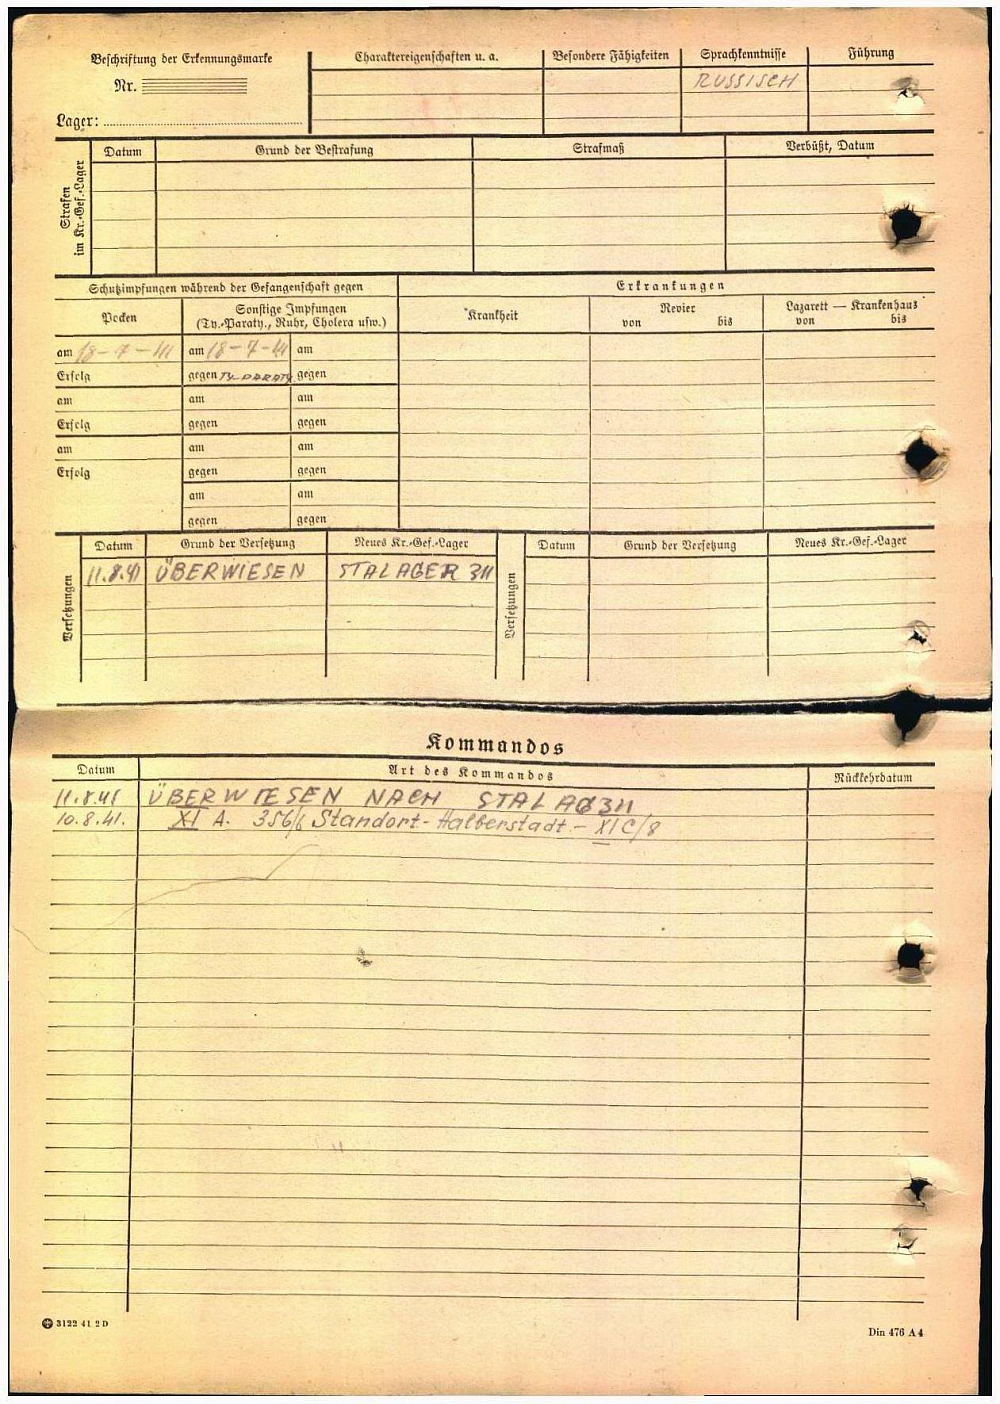 Beschriftung der Erkennungsmarke
Nr.
Lager:
Charaktereigenschaften u. a.
Besondere Fähigkeiten
Sprachkenntnisse
Führung
RUSSISCH
Strafen im Kr.-Gef.-Lager
Datum
Grund der Bestrafung
Strafmaß
Verbüßt, Datum
Schutzimpfungen während der Gefangenschaft gegen
Erkrankungen
Pocken
Sonstige Impfungen
(Ty.-Paraty., Ruhr, Cholera usw.)
Krankheit
Revier
von bis
Lazarett — Krankenhaus
von bis
am 18-7-41 am 18-7-41 am
Erfolg gegen TY-PARATY gegen
am am am
Erfolg gegen gegen
am am am
Erfolg gegen gegen
am am
gegen gegen
Versetzungen
Datum Grund der Versetzung Neues Kr.-Gef.-Lager
11.8.41 ÜBERWIESEN STALAGER 311
Versetzungen
Datum Grund der Versetzung Neues Kr.-Gef.-Lager
Kommandos
Datum Art des Kommandos Rückkehrdatum
11.8.41 ÜBERWIESEN NACH STALAG 311
10.8.41. XI A. 356/6 Standort-Halberstadt - XI C/8
3122 41 2 D
Din 476 A 4